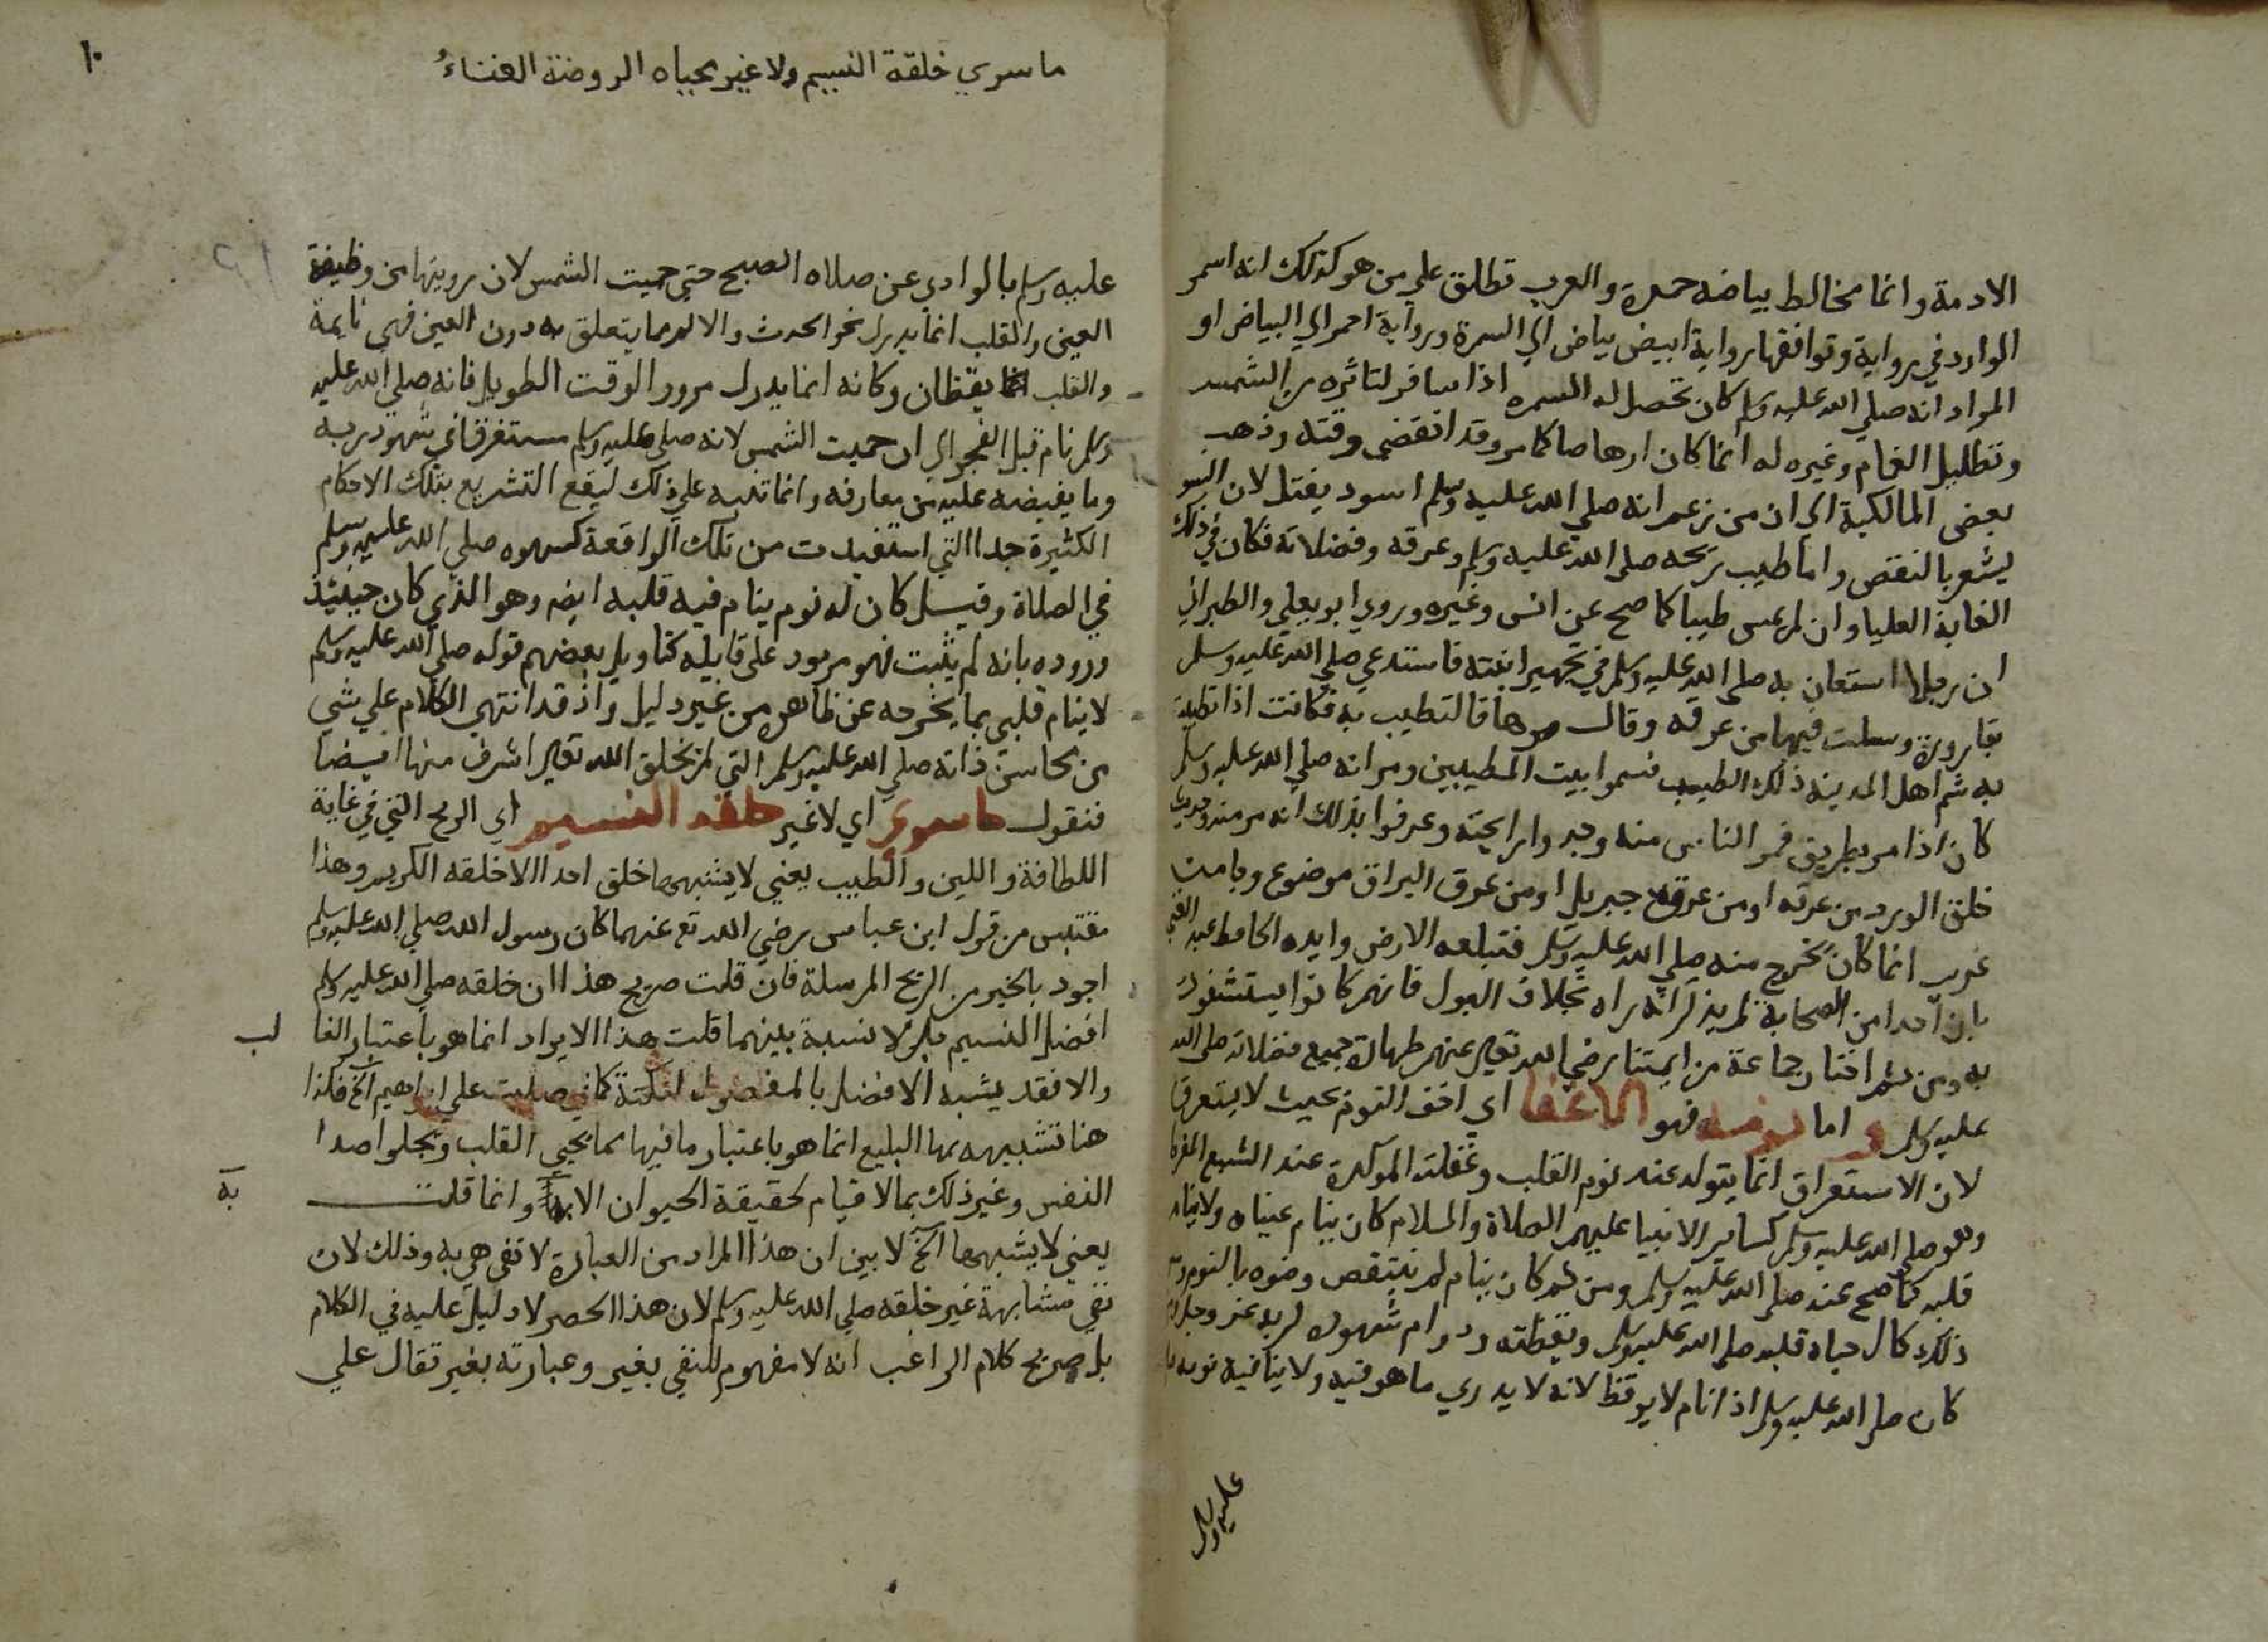 الادمة وانما مخالط بياضه حمرة والعرب تطلق على من هو كذلك انه اسمر
الوارد في رواية وتوافقها رواية ابيض بياض الي السمرة ورواية احمر الي البياض او
المراد انه صلي الله عليه وسلم كان تحصل له السمره اذا سافر لتاثره من الشمس
وتظليل الغمام وغيره له انما كان ارهاصا كما مر وقد انقضي وقته وذهب
بعض المالكية الي ان من زعم انه صلي الله عليه وسلم اسود يقتل لان
يشعر بالنقص واما طيب ريحه صلى الله عليه وسلم وعرقه وفضلاته فكان في ذلك
الغاية العليا وان لم يمس طيبا كما صح عن انس وغيره وروي ابو يعلي والطبراني
ان رجلا استعان به صلى الله عليه وسلم في تجهيز ابنته فاستدعي صلي الله عليه وسلم
بقارورة وسلت فيها من عرقه وقال مرها فلتطيب به فكانت اذا تطيبت
به شم اهل المدينة ذلك الطيب فسموا بيت المطيبين ومر انه صلي الله عليه وسلم
كان اذا مر بطريق فمر الناس منه وجدوا رايحته وعرفوا بذلك انه مر منه وحديث
خلق الورد من عرقه او من عرق جبريل او من عرق البراق موضوع وجا من
انما كان يخرج منه صلي الله عليه وسلم فتبلعه الارض وايده الحافظ عبد الغني
بان احدا من الصحابة لم يذكر انه راه بخلاف البول فانهم كانوا يستشفون
به ومن ثم اختار جماعة من ايمتنا رضي الله تعالى عنهم طهارة جميع فضلاته صلى الله
عليه وسلم واما نومه فهو الاغفا اي اخف النوم بحيث لا يستغرق
لان الاستغراق انما يتولد عند نوم القلب وغفلته الموكدة عند الشبع المفرط
وهو صلى الله عليه وسلم كساير الانبيا عليهم الصلاة والسلام كان ينام عيناه ولا ينام
قلبه كما صح عنه صلى الله عليه وسلم ومن ثم كان ينام لم ينتقض وضوه بالنوم
ذلك كمال حياه قلبه صلى الله عليه وسلم ويقظته ودوام شهوده لربه عز وجل
كان صلى الله عليه وسلم اذا نام لا يوقظ لانه لا يدري ما هو فيه ولا ينافيه نومه
عليه وسلم
١٠
ما سوي خلقة النسيم ولا غير محياه الروضة الغناءُ
عليه وسلم بالوادي عن صلاه الصبح حتى حميت الشمس لان رويتها من وظيفة
العين والقلب انما يدرك نحو الحدث والالم مما يتعلق به دون العين فهي نايمة
والقلب يقظان وكانه انما يدرك مرور الوقت الطويل فانه صلى الله عليه
وسلم نام قبل الفجر الي ان حميت الشمس لانه صلى عليه وسلم مستغرقا في شهود ربه
وما يفيضه عليه من معارفه وانما تنبه علي ذلك ليقع التشريع بتلك الاحكام
الكثيرة جدا التي استفيدت من تلك الواقعة كسهوه صلي الله عليه وسلم
في الصلاة وقيل كان له نوم ينام فيه قلبه ايضا وهو الذي كان حينئذ
وردوه بانه لم يثبت فهو مردود على قايله كتاويل بعضهم قوله صلي الله عليه وسلم
لا ينام قلبي بما يخرجه عن ظاهره من غير دليل واذ قد انتهي الكلام علي شي
من محاسن ذاته صلي الله عليه وسلم التي لم يخلق الله تعالى اشرف منها ايضا
فنقول ما سوي اي لا غير خلقه النسيم اي الريح التي في غاية
اللطافة واللين والطيب يعني لا يشبهها خلق احد الا خلقه الكريم وهذا
مقتبس من قول ابن عباس رضي الله تع عنهما كان رسول الله صلي الله عليه وسلم
اجود بالخير من الريح المرسلة فان قلت صريح هذا ان خلقه صلى الله عليه وسلم
افضل النسيم بل لا نسبة بينهما قلت هذا الايراد انما هو باعتبار الغا لب
والا فقد يشبه الافضل بالمفضول لنكتة كما في صليت علي ابراهيم الخ فكذا
هنا تشبيهه بها البليغ انما هو باعتبار ما فيها مما يحيي القلب ويجلوا صدا
النفس وغير ذلك بما لا قيام لحقيقة الحيوان الا به وانما قلت
يعني لا يشبهها الخ لابين ان هذا المراد من العبارة لا تفي هي به وذلك لان
نفي مشابهة غير خلقه صلي الله عليه وسلم لان هذا الحصر لا دليل عليه في الكلام
بل صريح كلام الراغب انه لا مفهوم للنفي بغير وعبارته بغير تقال علي